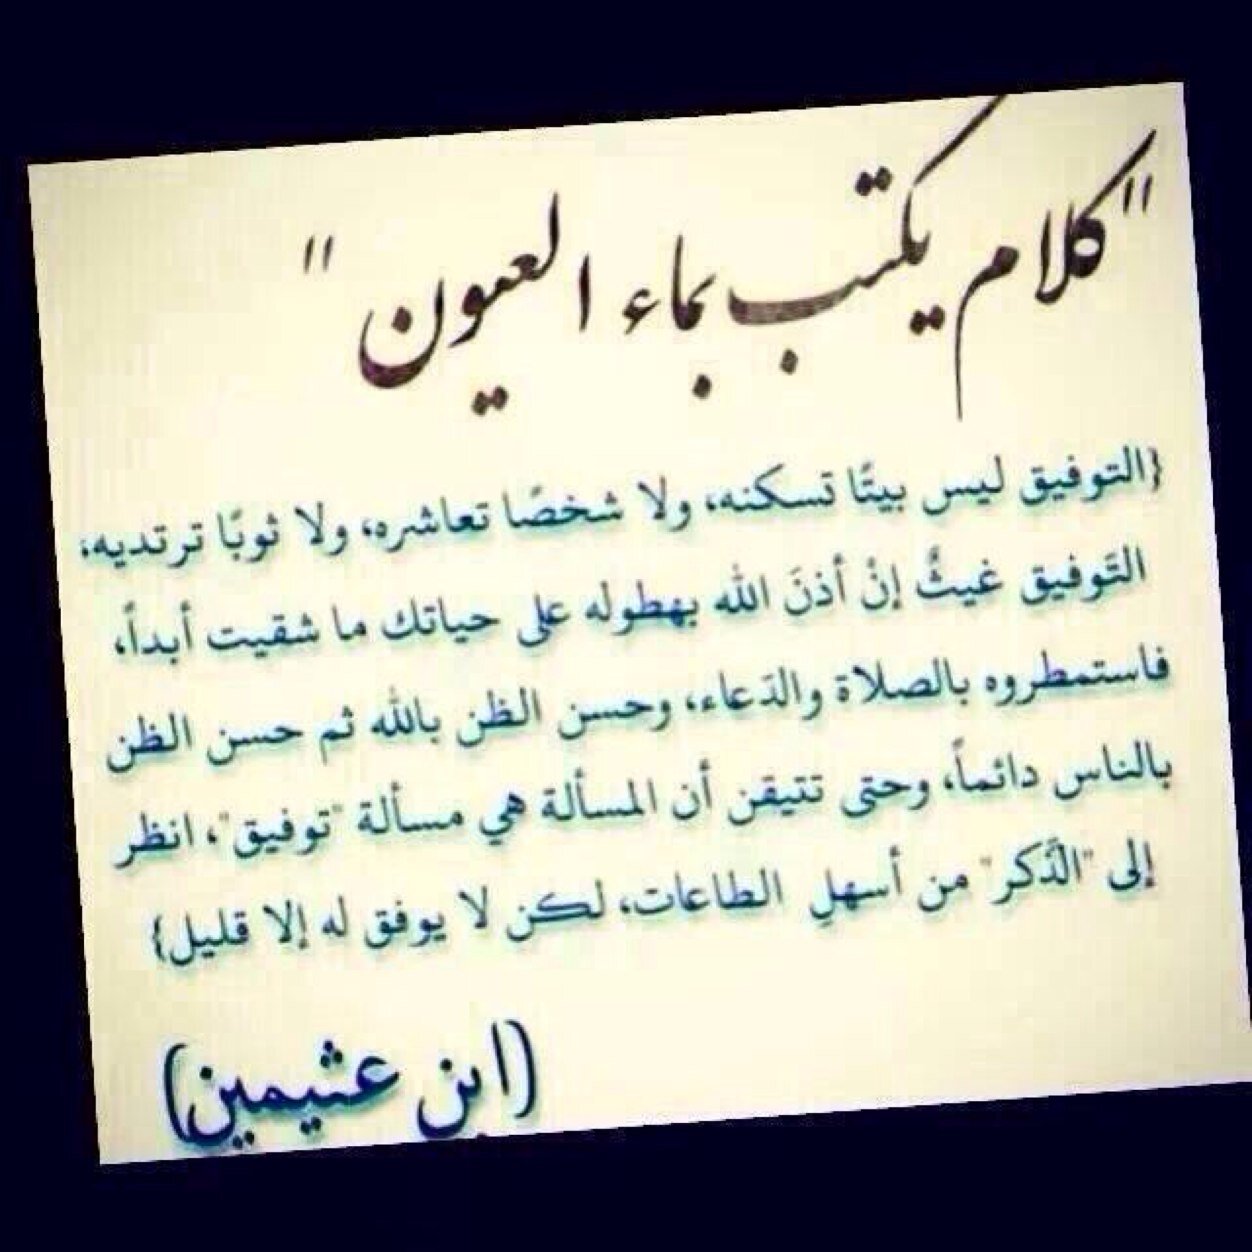 "كلام يكتب بماء العيون"
{التوفيق ليس بيتًا تسكنه، ولا شخصًا تعاشره، ولا ثوبًا ترتديه،
التَوفيق غيثٌ إنْ أذنَ الله بهطوله على حياتك ما شقيت أبداً،
فاستمطروه بالصلاة والدَعاء، وحسن الظن بالله ثم حسن الظن
بالناس دائماً، وحتى تتيقن أن المسألة هي مسألة "توفيق"، انظر
إلى "الَذَكر" من أسهلِ الطاعات، لكن لا يوفق له إلا قليل}
(ابن عثيمين)